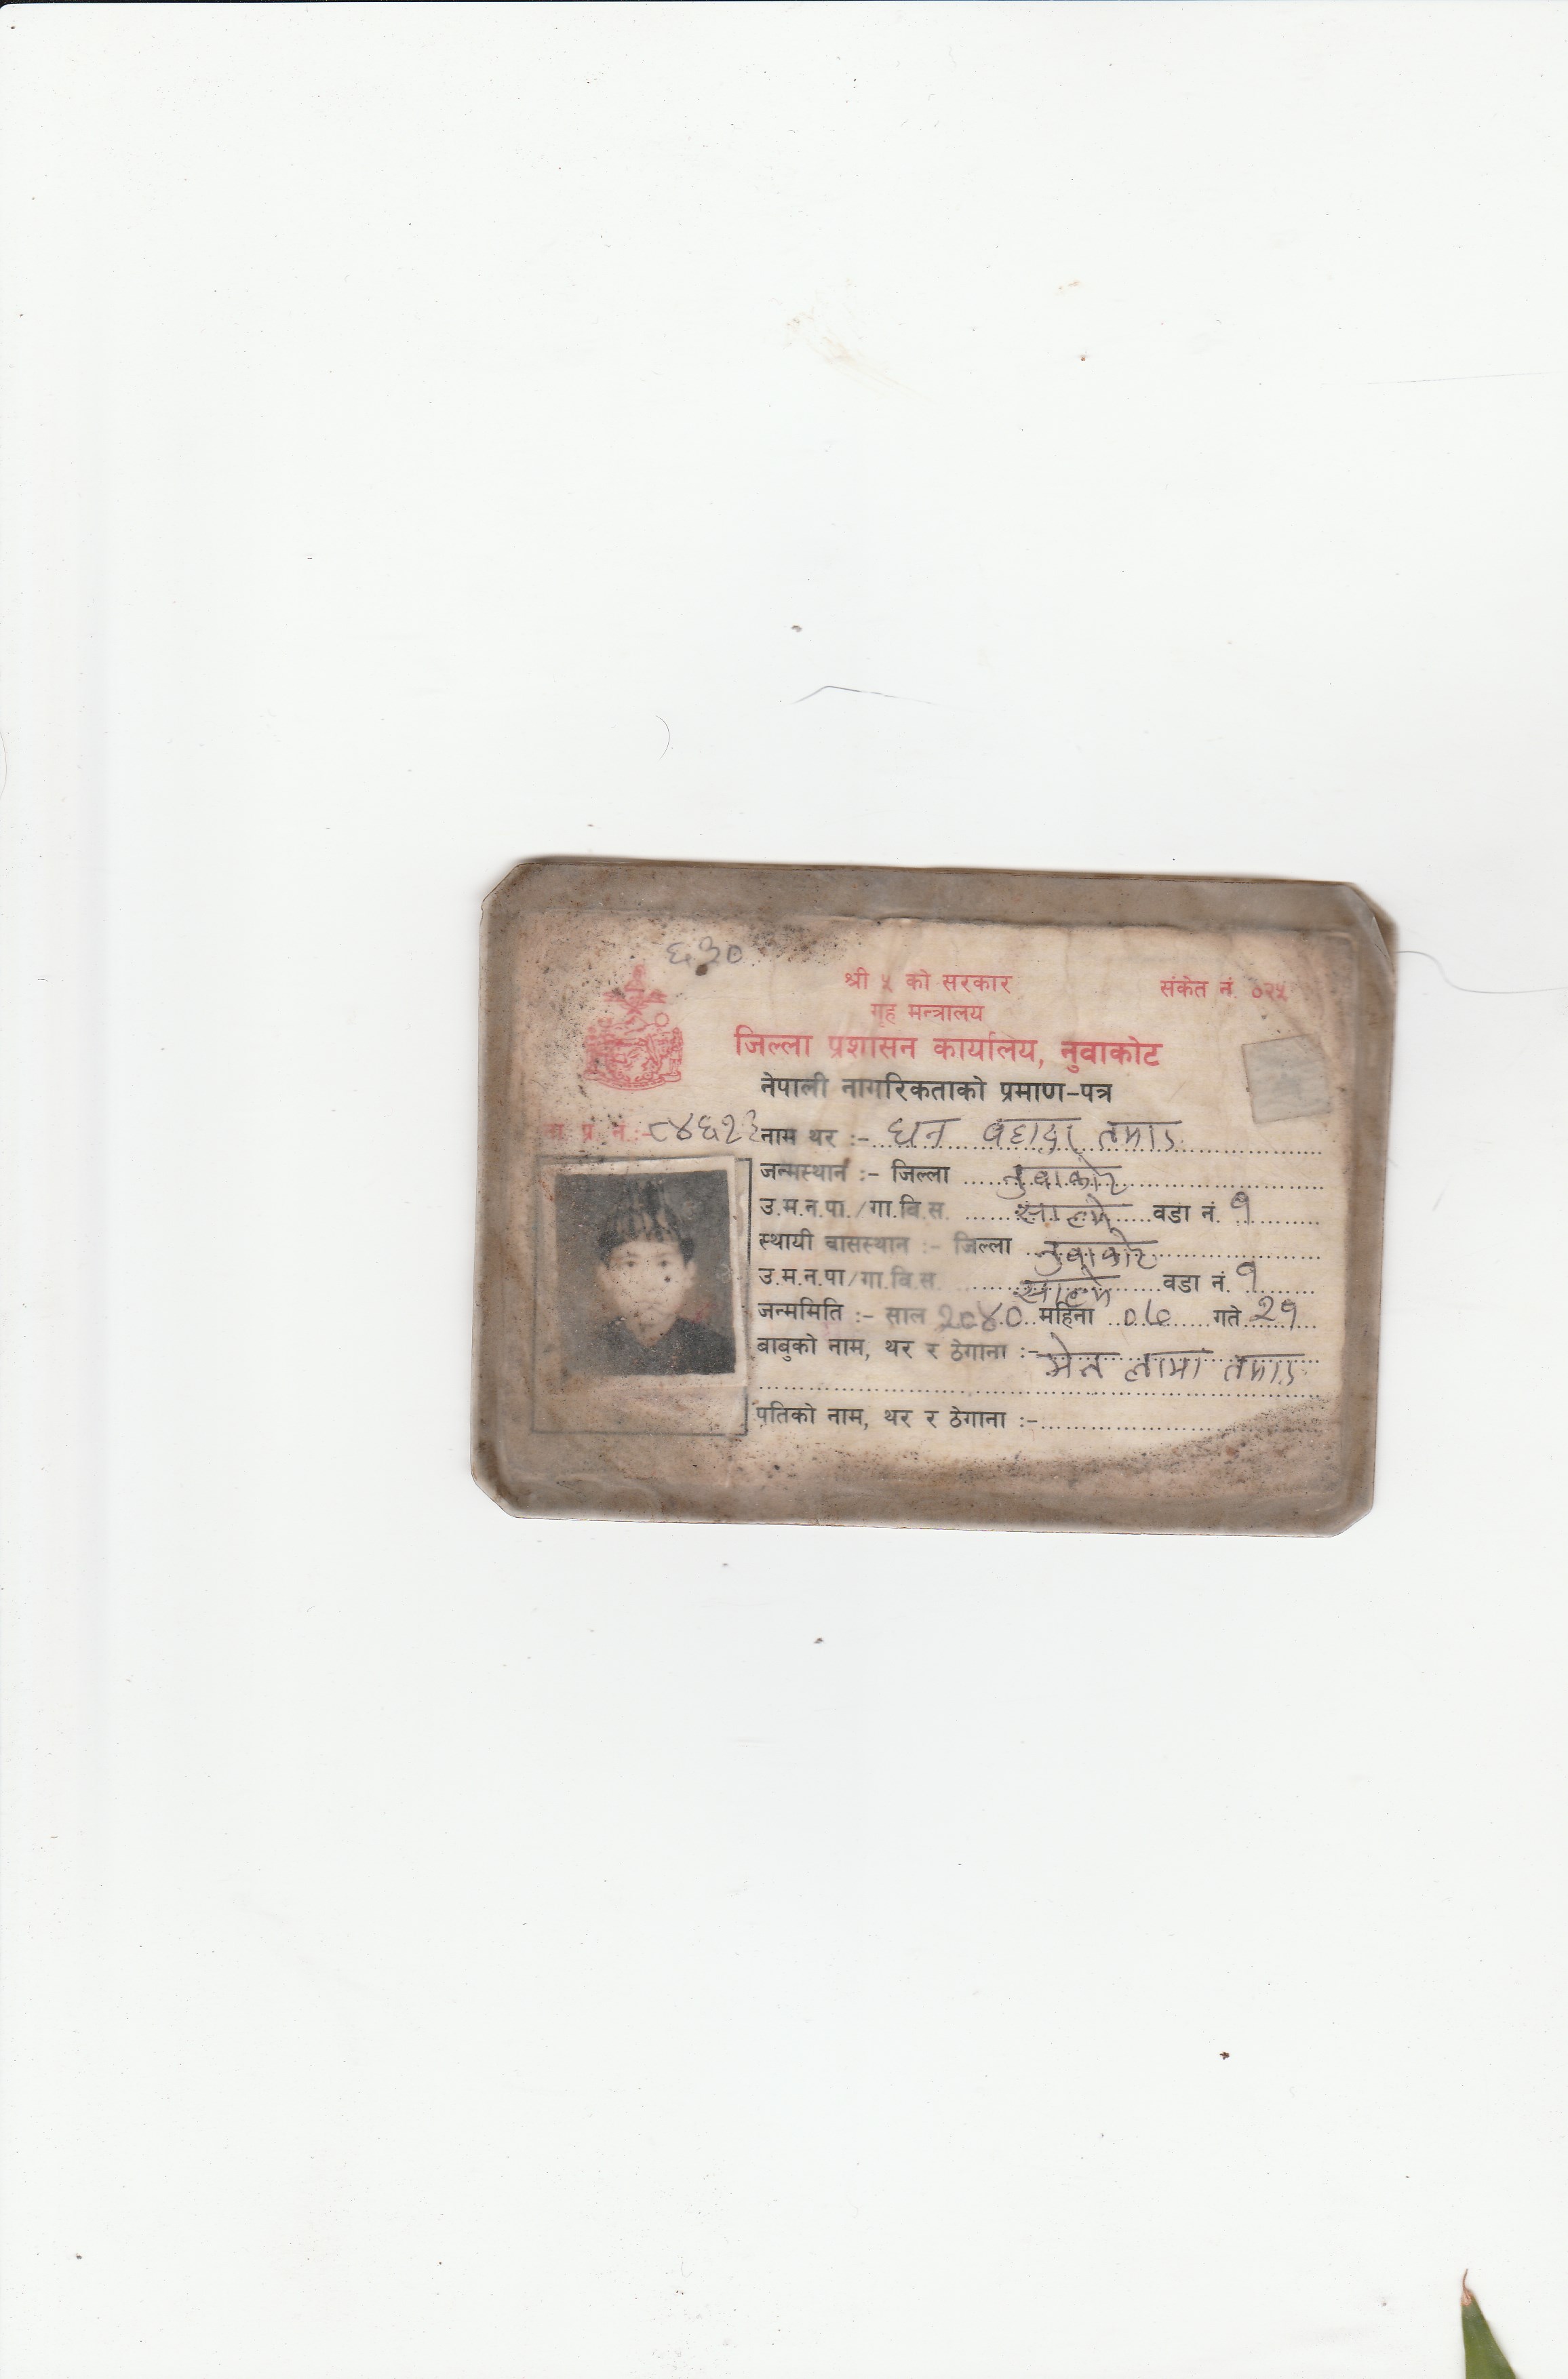 ६३०
श्री ५ को सरकार
संकेत नं. ०२५
गृह मन्त्रालय
जिल्ला प्रशासन कार्यालय, नुवाकोट
नेपाली नागरिकताको प्रमाण-पत्र
ना. प्र. नं. :-
नाम थर :- धन बहादुर तामाङ
जन्मस्थान :- जिल्ला नुवाकोट
उ.म.न.पा./गा.वि.स. साल्मे वडा नं. १
स्थायी वासस्थान :- जिल्ला नुवाकोट
उ.म.न.पा/गा.वि.स. साल्मे वडा नं. १
जन्ममिति :- साल २०४० महिना ०७ गते २१
बाबुको नाम, थर र ठेगाना :- लामा तामाङ
पतिको नाम, थर र ठेगाना :-